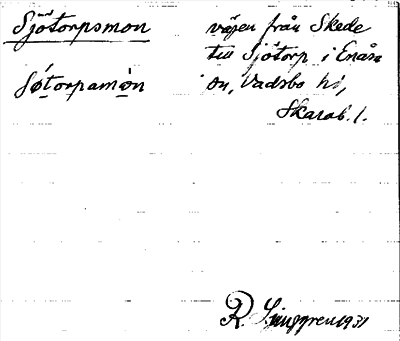 Sjötorpsmon
vägen från Skede
till Sjötorp i Enåsa
sn, Vadsbo hd,
Skarab. l.
Sjötorpamòn
R. Ljunggren 1931